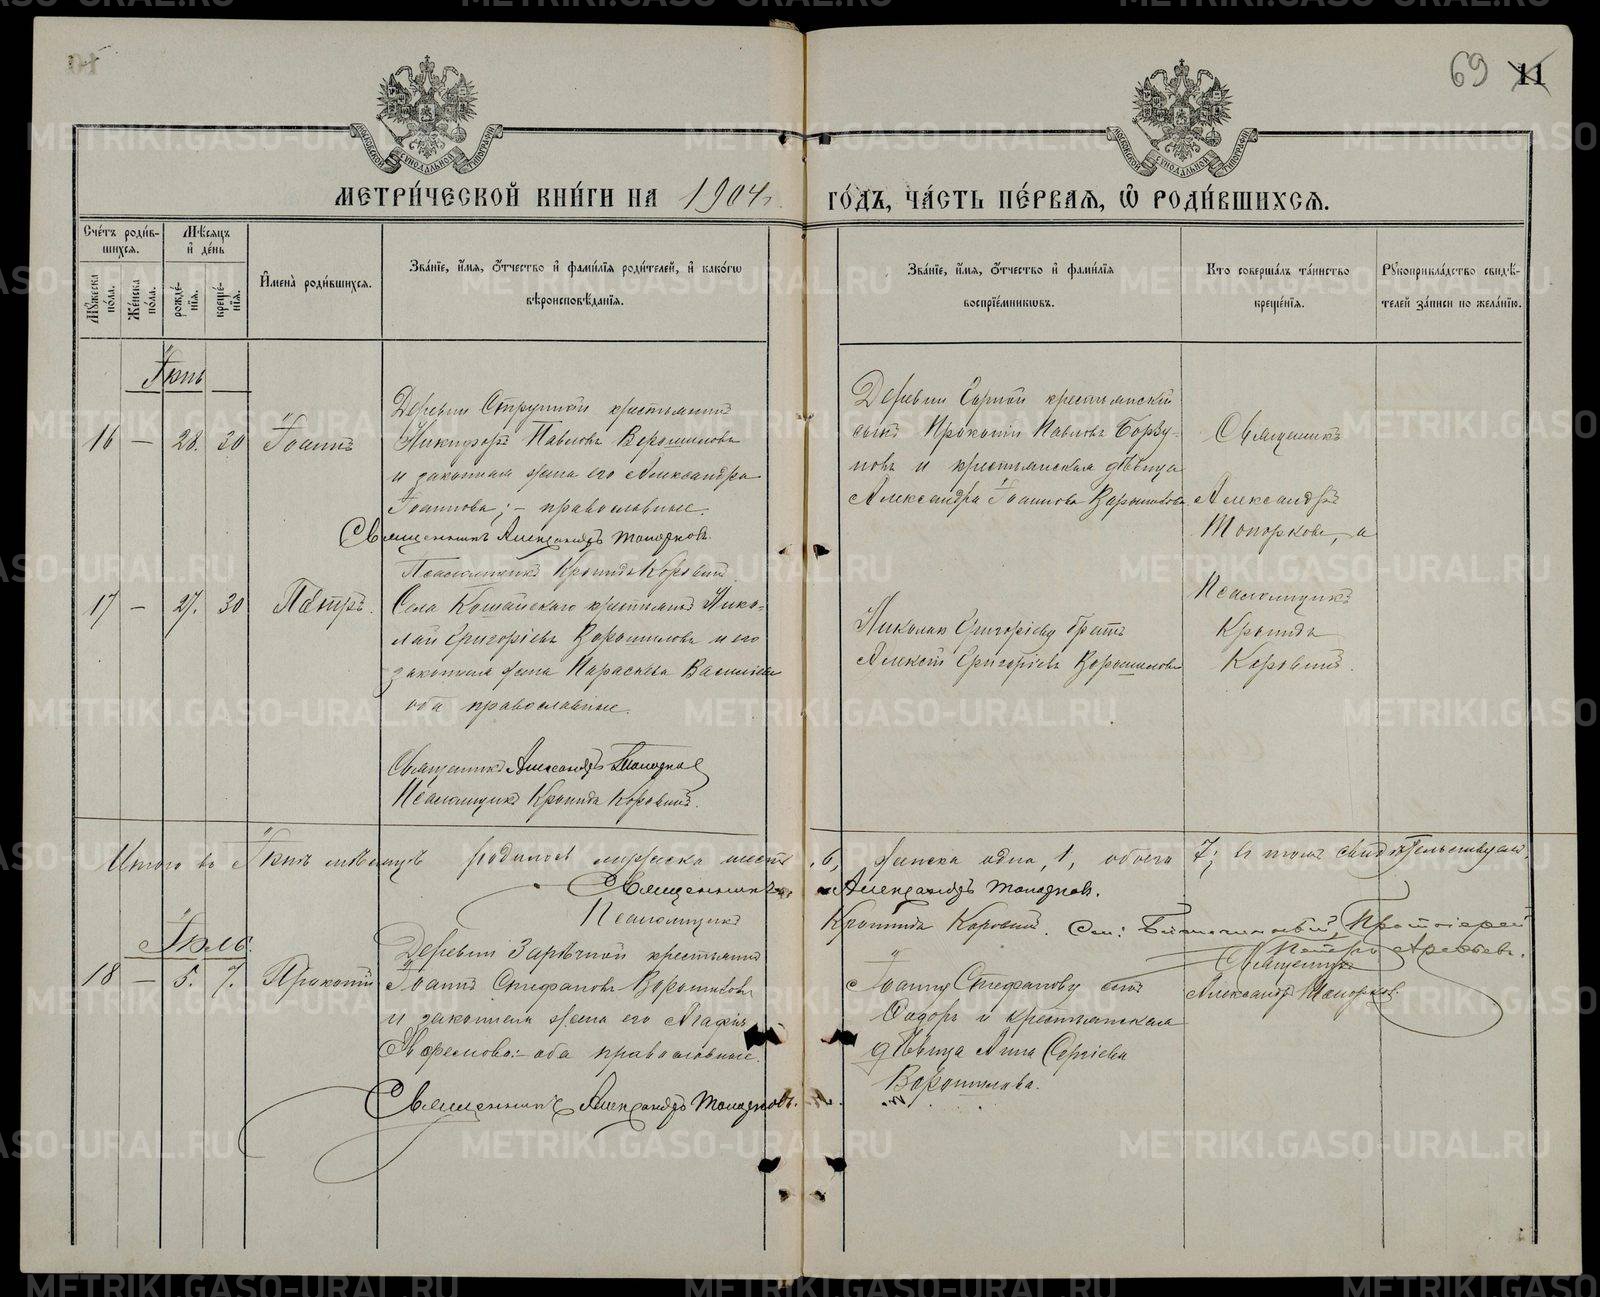 69 11
МЕТРИ́ЧЕСКОЙ КНИ́ГИ НА 1904 г. ГО́ДЪ, ЧА́СТЬ ПЕ́РВАЯ, Ѽ РОДИ́ВШИХСЯ.
Сче́тъ роди́в-
шихся.
Мꙋ́жеска по́ла.
Же́нска по́ла.
Мѣ́сяцъ
и҆ де́нь
рожде́-
нїя.
креще́-
нїя.
И҆мена̀ роди́вшихся.
Зва́нїе, и҆́мя, ѻ҆́тчество и҆ фами́лїя роди́телей, и҆ како́гѡ
вѣроисповѣ́данїя.
Зва́нїе, и҆́мя, ѻ҆́тчество и҆ фами́лїя
воспрїе́мникѡвъ.
Кто соверша́лъ та́инство
креще́нїя.
Рꙋкоприкла́дство свидѣ́-
телей за́писи по жела́нїю.
Іюнь
16 — 28. 30 Іоаннъ
Деревни крестьянинъ
Никифоръ Павловъ Ворошиловъ
и законная жена его Александра
Іоаннова; – православные.
Священникъ Александръ Топорковъ.
Псаломщикъ Кронидъ Коровинъ
Деревни Горной крестьянскій
сынъ Прокопій Павловъ Борзу-
новъ и крестьянская дѣвица
Александра Іоаннова Ворошилова
Священникъ
Александръ
Топорковъ, а
Псаломщикъ
Кронидъ
Коровинъ.
17 — 27. 30 Петръ.
Села Кошайскаго крестьянинъ Нико-
лай Григорьевъ Ворошиловъ и его
законная жена Параскева Васильева
оба православные.
Священникъ Александръ Топорковъ
Псаломщикъ Кронидъ Коровинъ.
Николая Григорьева братъ
Алексѣй Григорьевъ Ворошиловъ
Итого въ Іюнѣ мѣсяцѣ родилось мужеска шесть, 6, женска одна, 1, обоего 7; въ томъ свидѣтельствуемъ,
Священникъ Александръ Топорковъ.
Псаломщикъ Кронидъ Коровинъ. Благочинный, Протоіерей
Петръ Арефьевъ.
Іюль.
18 — 5. 7. Прокопій
Деревни Зарѣчной крестьянинъ
Іоаннъ Стефановъ Ворошиловъ
и законная жена его Агафія
Ефремова:– оба православные.
Священникъ Александръ Топорковъ.
Іоанну Стефанову сынъ
Ѳедоръ и крестьянская
дѣвица Анна Сергіева
Ворошилова.
Священникъ
Александръ Топорковъ
МОСКОВСКОЙ СѴНОДАЛЬНОЙ ТИПОГРАФІИ
МОСКОВСКОЙ СѴНОДАЛЬНОЙ ТИПОГРАФІИ
METRIKI.GASO-URAL.RU